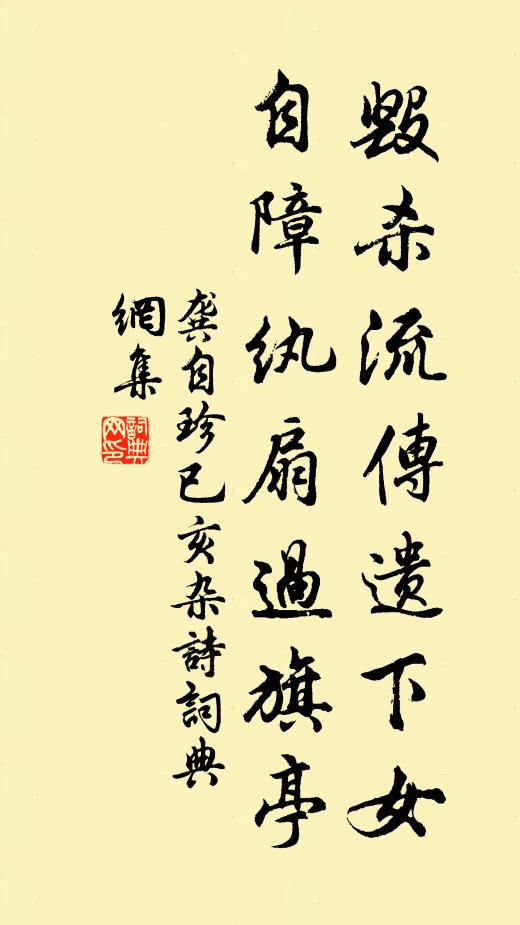 毀杀流傳遗下女
自障纨扇過旗亭
龚自珍已亥杂詩詞典
網集
詞典
网印